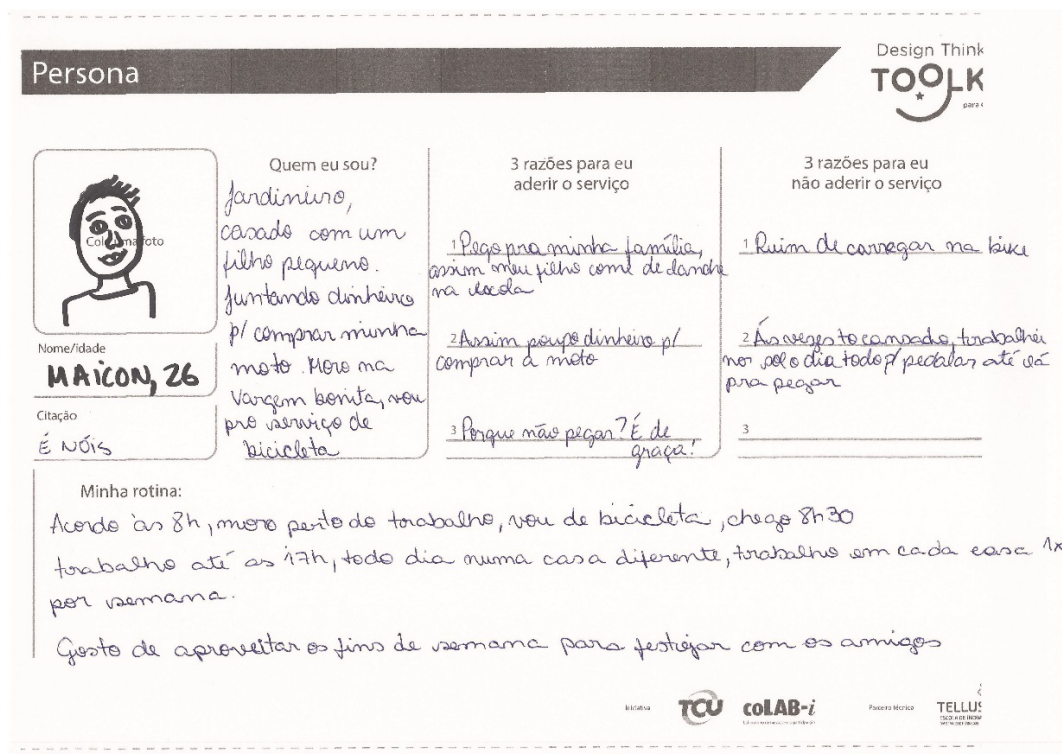 Persona
Design Think
TOOLK
para
Quem eu sou?
Jardineiro,
casado com um
filho pequeno.
Juntando dinheiro
p/ comprar minha
moto. Moro na
Vargem bonita, vou
pro serviço de
bicicleta
3 razões para eu
aderir o serviço
1 Pego pra minha família,
assim meu filho come de lanche
na escola
2 Assim poupo dinheiro p/
comprar a moto
3 Porque não pegar? É de
graça!
3 razões para eu
não aderir o serviço
1 Ruim de carregar na bike
2 Às vezes to cansado, trabalhei
no sol o dia todo p/ pedalar até lá
pra pegar
3
Cole uma foto
Nome/idade
MAICON, 26
Citação
É NÓIS
Minha rotina:
Acordo às 8h, moro perto do trabalho, vou de bicicleta, chego 8h30
trabalho até as 17h, todo dia numa casa diferente, trabalho em cada casa 1x
por semana.
Gosto de aproveitar os fins de semana para festejar com os amigos
Iniciativa
TCU
coLAB-i
Parceiro técnico
TELLUS